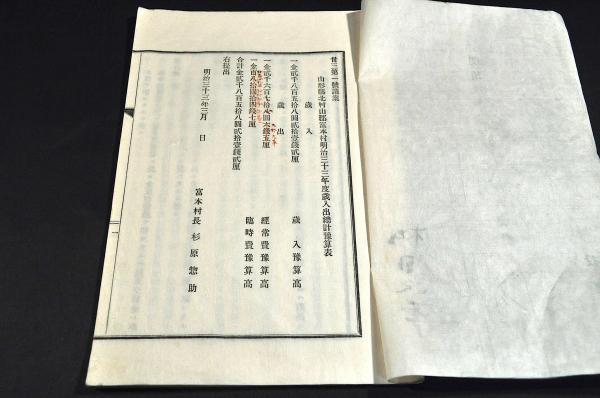 廿三第一號議案
山形縣北村山郡富本村明治三十三年度歳入出總計豫算表
歳入
一金貳千八百五拾八圓貳拾壹錢貳厘 歳入豫算高
歳出
一金貳千六百七拾八圓六錢五厘 經常費豫算高
一金百八拾圓拾四錢七厘 臨時費豫算高
合計金貳千八百五拾八圓貳拾壹錢貳厘
右提出
明治三十三年三月 日
富本村長 杉原惣助